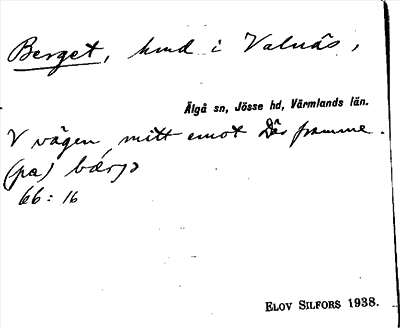 Berget, hmd i Valnäs,
Älgå sn, Jösse hd, Värmlands län.
V vägen, mitt emot Där framme.
(pa) bærjə
66: 16
ELOV SILFORS 1938.